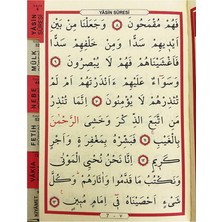 YÂSİN SÛRESİ
فَهُمْ مُقْمَحُونَ ﴿٨﴾ وَجَعَلْنَا مِنْ بَيْنِ
اَيْدِيهِمْ سَدًّا وَمِنْ خَلْفِهِمْ سَدًّا
فَاَغْشَيْنَاهُمْ فَهُمْ لَا يُبْصِرُونَ ﴿٩﴾
وَسَوَٓاءٌ عَلَيْهِمْ ءَاَنْذَرْتَهُمْ اَمْ لَمْ
تُنْذِرْهُمْ لَا يُؤْمِنُونَ ﴿١٠﴾ اِنَّمَا تُنْذِرُ
مَنِ اتَّبَعَ الذِّكْرَ وَخَشِيَ الرَّحْمٰنَ
بِالْغَيْبِ فَبَشِّرْهُ بِمَغْفِرَةٍ وَاَجْرٍ
كَرِيمٍ ﴿١١﴾ اِنَّا نَحْنُ نُحْيِ الْمَوْتٰى
وَنَكْتُبُ مَا قَدَّمُوا وَاٰثَارَهُمْ وَكُلَّ
شَيْءٍ اَحْصَيْنَاهُ فِٓي اِمَامٍ مُبِينٍ ﴿١٢﴾
YÂSİN SÛRESİ
MÜLK
NEBE
FETİH
VAKIA
KIYÂMET